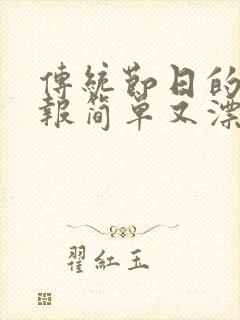 傳統節日的
報簡單又漂
翟紅玉